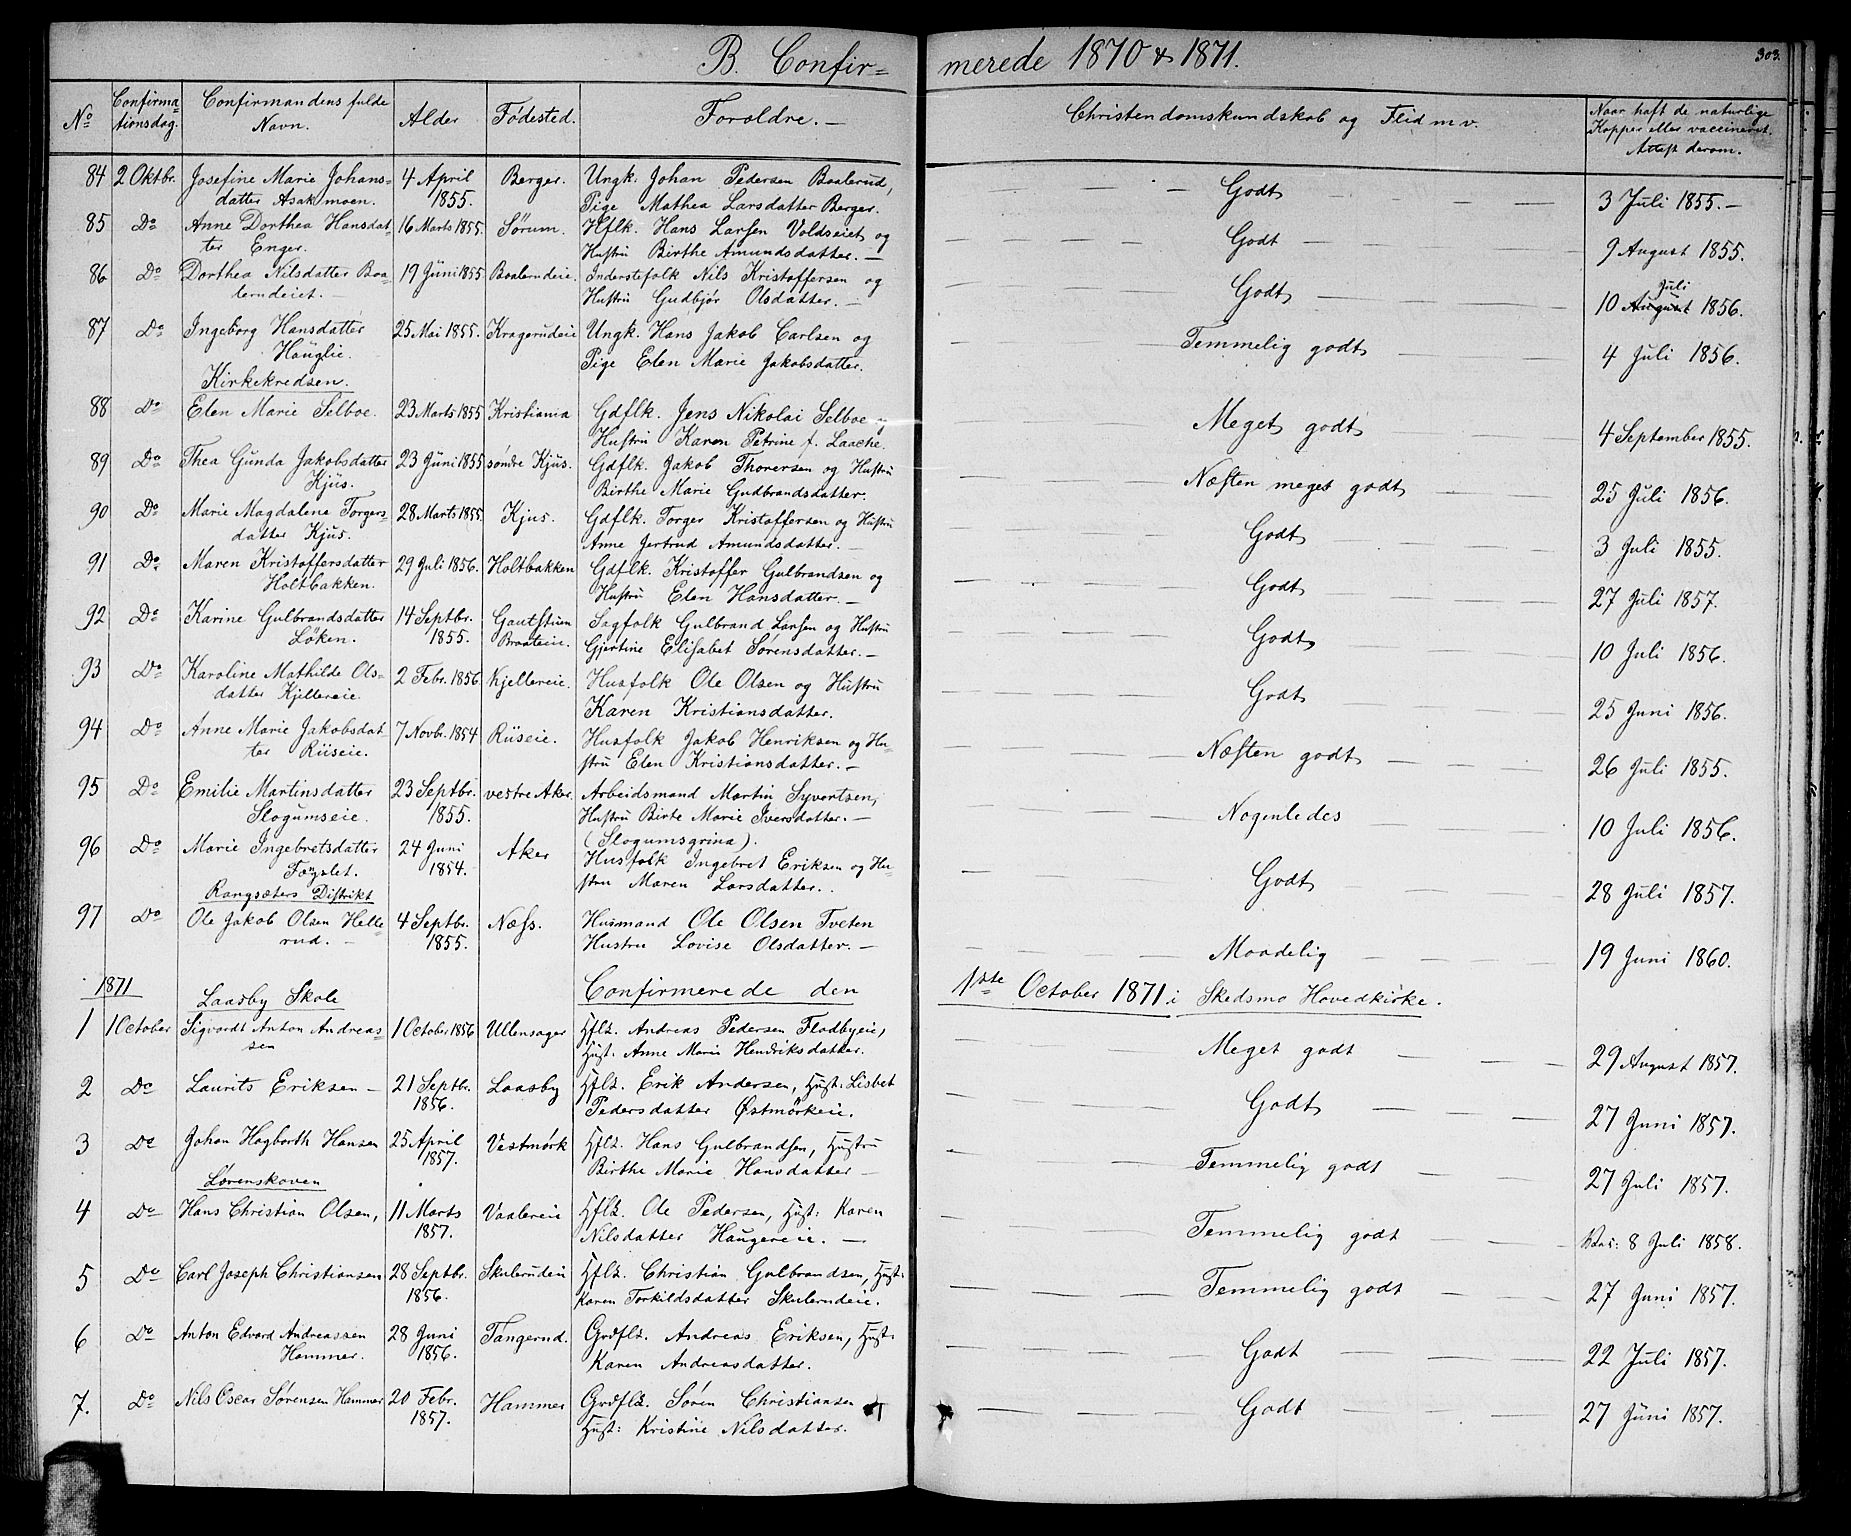 B. Confir= merede 1870 & 1871.
303.
No Confirma=tionsdag. Confirmandens fulde Navn. Alder Fødested. Foroldre. — Christendomskundskab og Flid m v. Naar haft de naturlige Kopper eller vaccineret. Attest derom.
84 2 Oktbr. Josefine Marie Johans= 4 April Berger. Ungk. Johan Pedersen Baalerud, Godt 3 Juli 1855. —
datter Asakmoen. 1855. Pige Mathea Larsdatter Berger.
85 Do Anne Dorthea Hansdat= 16 Marts 1855. Sørum. Hflk. Hans Larsen Voldseiet og Godt 9 August 1855.
ter Enger. Hustru Birthe Amundsdatter. —
86 Do Dorthea Nilsdatter Baa= 19 Juni 1855 Baalerudeie. Inderstefolk Nils Kristoffersen og Godt 10 August Juli 1856.
lerudeiet. — Hustru Gudbjør Olsdatter. —
87 Do Ingeborg Hansdatter 25 Mai 1855. Kragerudeie Ungk. Hans Jakob Carlsen og Temmelig godt 4 Juli 1856.
Hauglie. Pige Elen Marie Jakobsdatter.
Kirkekredsen.
88 Do Elen Marie Selboe. 23 Marts 1855 Kristiania Gdflk. Jens Nikolai Selboe og Meget godt 4 September 1855.
Hustru Karen Petrine f. Laache.
89 Do Thea Gunda Jakobsdatter 23 Juni 1855 søndre Kjus. Gdflk. Jakob Thorersen og Hustru Næsten meget godt 25 Juli 1856.
Kjus. Birthe Marie Gudbrandsdatter.
90 Do Marie Magdalene Torgers= 28 Marts 1855. Kjus. Gdflk. Torger Kristoffersen og Hustru Godt 3 Juli 1855.
datter Kjus. Anne Jertrud Amundsdatter. —
91 Do Maren Kristoffersdatter 29 Juli 1856. Holtbakken Gdflk. Kristoffer Gulbrandsen og Godt 27 Juli 1857.
Holtbakken. Hustru Elen Hansdatter. —
92 Do Karine Gulbrandsdatter 14 Septbr. Gautstuen Sagfolk Gulbrand Larsen og Hustru Godt 10 Juli 1856.
Løken. 1855. Braateie. Gjertine Elisabet Sørensdatter. —
93 Do Karoline Mathilde Ols= 2 Febr. 1856. Kjellereie. Husfolk Ole Olsen og Hustru Godt 25 Juni 1856.
datter Kjellereie. Karen Kristiansdatter.
94 Do Anne Marie Jakobsdat= 7 Novbr. 1854 Riiseie. Husfolk Jakob Henriksen og Hu= Næsten godt 26 Juli 1855.
ter Riiseie. stru Elen Kristiansdatter. —
95 Do Emilie Martinsdatter 23 Septbr. vestre Aker. Arbeidsmand Martin Syvertsen, Nogenledes 10 Juli 1856.
Slogumseie. 1855. Hustru Birte Marie Iversdatter. —
(Slogumsgrina).
96 Do Marie Ingebretsdatter 24 Juni Aker Husfolk Ingebret Eriksen og Hu= Godt 28 Juli 1857.
1854. stru Maren Larsdatter.
Rangsæters Distrikt
97 Do Ole Jakob Olsen Helle= 4 Septbr. Næss. Husmand Ole Olsen Tveten Maadelig 19 Juni 1860.
rud. — 1855. Hustru Lovise Olsdatter. —
1871 Laasby Skole Confirmerede den 1ste October 1871 i Skedsmo Hovedkirke.
1 1 October Sigvardt Anton Andreas= 1 October 1856 Ullensager Hflk. Andreas Pedersen Flodbyeie, Meget godt 29 August 1857.
sen Hust: Anne Marie Hendriksdatter.
2 Do Laurits Eriksen — 21 Septbr. Laasby Hflk. Erik Andersen, Hust: Lisbet Godt 27 Juni 1857.
1856. Pedersdatter Østmørkeie.
3 Do Johan Hagbarth Hansen 25 April Vestmørk Hflk. Hans Gulbrandsen, Hustru Temmelig godt 27 Juli 1857.
1857. Birthe Marie Hansdatter —
Lørenskoven
4 Do Hans Christian Olsen, 11 Marts Vaalereie Hflk. Ole Pedersen, Hust: Karen Temmelig godt 8 Juli 1858.
1857. Nilsdatter Haugereie. —
5 Do Carl Joseph Christiansen 28 Septbr. Skulerudeie Hflk. Christian Gulbrandsen, Hust: Temmelig godt 27 Juni 1857.
1856. Karen Torkildsdatter Skulerudeie.
6 Do Anton Edvard Andreassen 28 Juni Tangerud. Grdflk. Andreas Eriksen, Hust: Godt 22 Juli 1857.
Hammer. 1856. Karen Andreasdatter.
7. Do Nils Oscar Sørensen Hammer 20 Febr. Hammer Grdflk. Søren Christiansen Godt 27 Juni 1857.
1857. Hust: Kristine Nilsdatter.